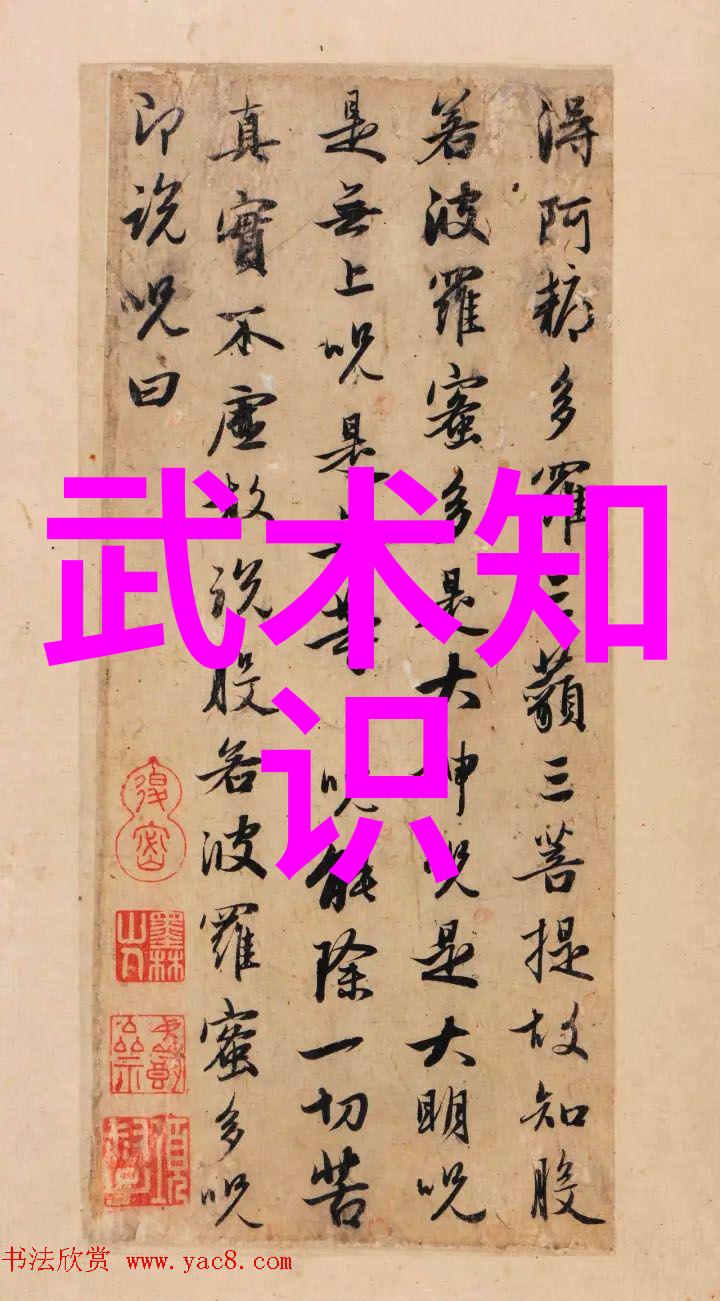 得阿耨多羅三藐三菩提故知般
若波羅蜜多是大神呪是大明呪
是無上呪是無等 呪能除一切苦
真實不虛故說般若波羅蜜多呪
即說呪曰
墨林山人
武术知
识
书法欣赏 www.yac8.com